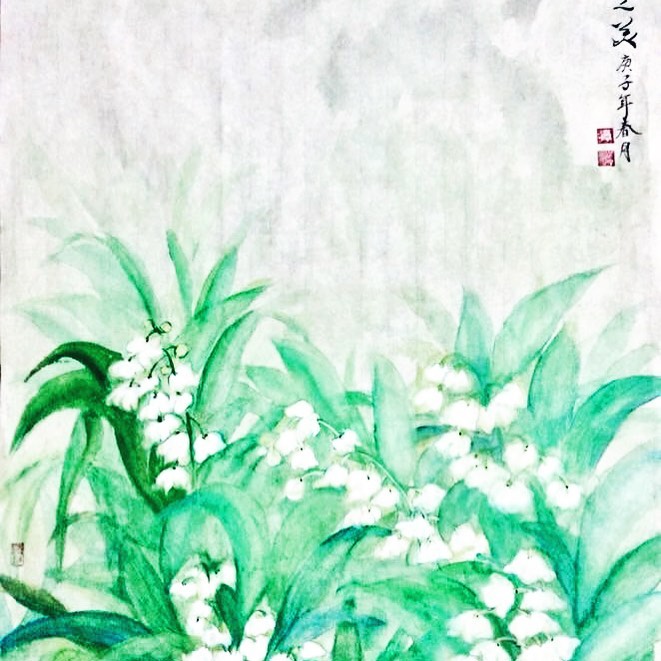 之美
庚子年春月